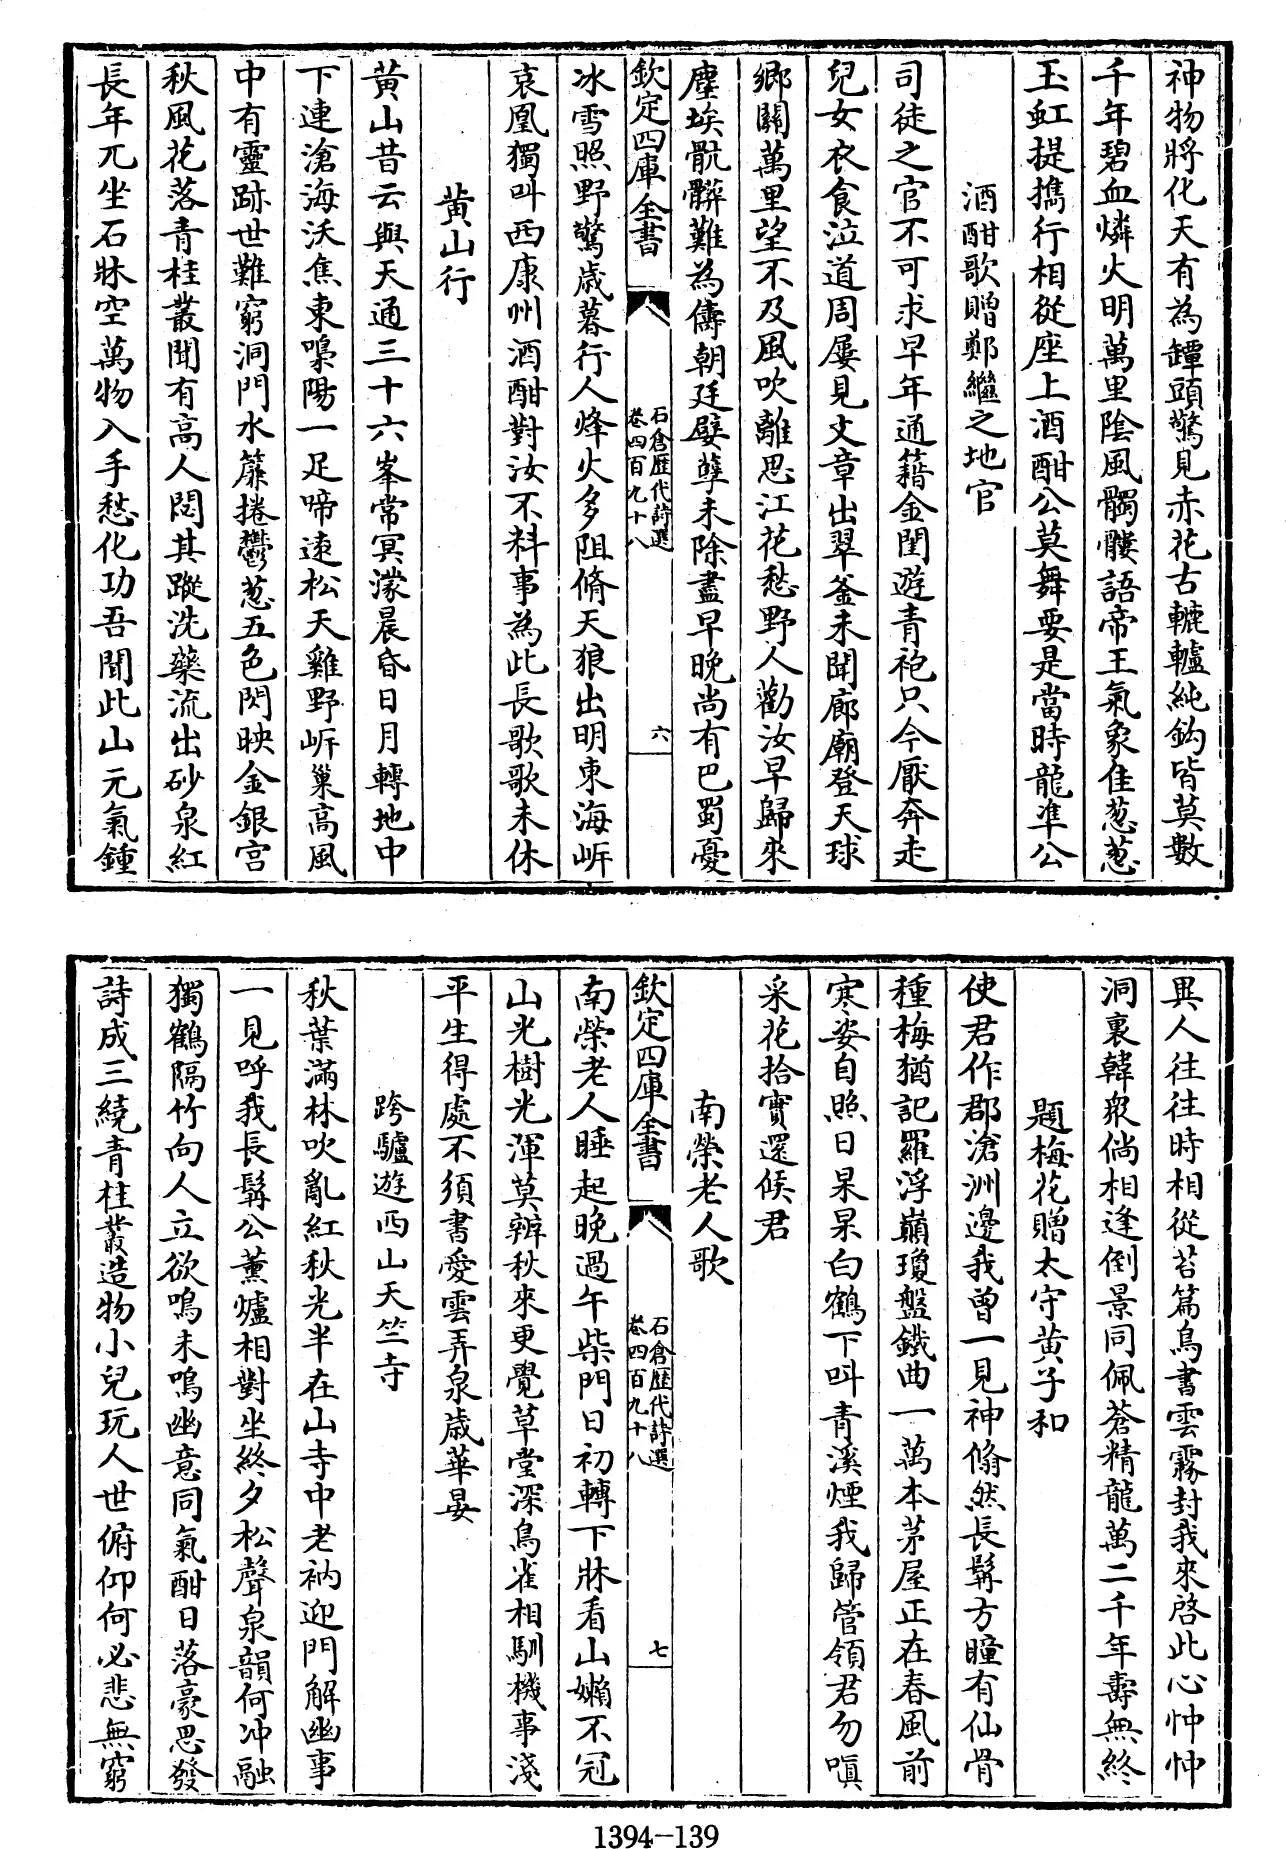 神物將化天有為罈頭驚見赤花古轆轤純鈎皆莫數
千年碧血燐火明萬里陰風髑髏語帝王氣象佳葱葱
玉虹提擕行相從座上酒酣公莫舞要是當時龍準公
酒酣歌贈鄭繼之地官
司徒之官不可求早年通籍金閨遊青袍只今厭奔走
兒女衣食泣道周屢見文章出翠釜未聞廊廟登天球
鄉關萬里望不及風吹離思江花愁野人勸汝早歸來
塵埃骯髒難為儔朝廷嬖孽未除盡早晚尚有巴蜀憂
欽定四庫全書
石倉歷代詩選
卷四百九十八
六
冰雪照野驚歲暮行人烽火多阻脩天狼出明東海㟁
哀凰獨叫西康州酒酣對汝不料事為此長歌歌未休
黄山行
黄山昔云與天通三十六峯常冥濛晨昏日月轉地中
下連滄海沃焦東嘷陽一足啼遠松天雞野㟁巢高風
中有靈跡世難窮洞門水簾捲鬱葱五色閃映金銀宫
秋風花落青桂叢聞有高人閟其蹤洗藥流出砂泉紅
長年兀坐石牀空萬物入手愁化功吾聞此山元氣鍾
異人往往時相從苔篇鳥書雲霧封我來啓此心忡忡
洞裏韓衆倘相逢倒景同佩蒼精龍萬二千年壽無終
題梅花贈太守黄子和
使君作郡滄洲邊我曾一見神翛然長髯方瞳有仙骨
種梅猶記羅浮巔瓊盤鐵曲一萬本茅屋正在春風前
寒姿自照日杲杲白鶴下叫青溪煙我歸管領君勿嗔
采花拾實還候君
南榮老人歌
欽定四庫全書
石倉歷代詩選
卷四百九十八
七
南榮老人睡起晚過午柴門日初轉下牀看山嬾不冠
山光樹光渾莫辨秋來更覺草堂深鳥雀相馴機事淺
平生得處不須書愛雲弄泉歲華晏
跨驢遊西山天竺寺
秋葉滿林吹亂紅秋光半在山寺中老衲迎門解幽事
一見呼我長髯公薰爐相對坐終夕松聲泉韻何冲融
獨鶴隔竹向人立欲鳴未鳴幽意同氣酣日落豪思發
詩成三繞青桂叢造物小兒玩人世俯仰何必悲無窮
1394-139